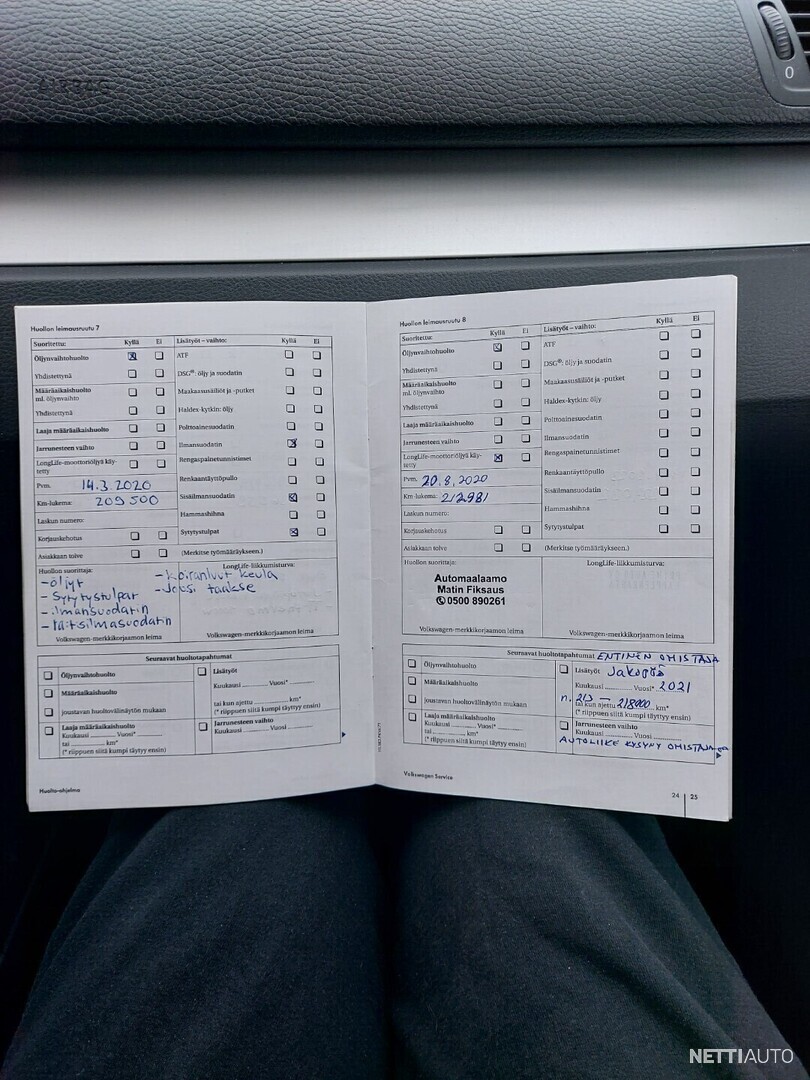 AIRBAG
0
Huollon leimausruutu 7
Suoritettu: Kyllä Ei
Öljynvaihtohuolto
Yhdistettynä
Määräaikaishuolto
ml. öljynvaihto
Yhdistettynä
Laaja määräaikaishuolto
Jarrunesteen vaihto
LongLife-moottoriöljyä käy-
tetty
Pvm. 14.3.2020
Km-lukema: 209 500
Laskun numero:
Korjauskehotus
Asiakkaan toive
Lisätyöt – vaihto: Kyllä Ei
ATF
DSG®: öljy ja suodatin
Maakaasusäiliöt ja -putket
Haldex-kytkin: öljy
Polttoainesuodatin
Ilmansuodatin
Rengaspainetunnistimet
Renkaantäyttöpullo
Sisäilmansuodatin
Hammashihna
Sytytystulpat
(Merkitse työmääräykseen.)
Huollon suorittaja:
-öljyt
-Sytytystulpat
-ilmansuodatin
-raitisilmasuodatin
Volkswagen-merkkikorjaamon leima
LongLife-liikkumisturva:
-koiranluut keula
-Jousi taakse
Volkswagen-merkkikorjaamon leima
Seuraavat huoltotapahtumat
Öljynvaihtohuolto
Määräaikaishuolto
joustavan huoltovälinäytön mukaan
Laaja määräaikaishuolto
Kuukausi Vuosi*
tai km*
(* riippuen siitä kumpi täyttyy ensin)
Lisätyöt
Kuukausi Vuosi*
tai kun ajettu km*
(* riippuen siitä kumpi täyttyy ensin)
Jarrunesteen vaihto
Kuukausi Vuosi
Huolto-ohjelma
Huollon leimausruutu 8
Suoritettu: Kyllä Ei
Öljynvaihtohuolto
Yhdistettynä
Määräaikaishuolto
ml. öljynvaihto
Yhdistettynä
Laaja määräaikaishuolto
Jarrunesteen vaihto
LongLife-moottoriöljyä käy-
tetty
Pvm. 20.8.2020
Km-lukema: 212981
Laskun numero:
Korjauskehotus
Asiakkaan toive
Lisätyöt – vaihto: Kyllä Ei
ATF
DSG®: öljy ja suodatin
Maakaasusäiliöt ja -putket
Haldex-kytkin: öljy
Polttoainesuodatin
Ilmansuodatin
Rengaspainetunnistimet
Renkaantäyttöpullo
Sisäilmansuodatin
Hammashihna
Sytytystulpat
(Merkitse työmääräykseen.)
Huollon suorittaja:
Automaalaamo
Matin Fiksaus
✆0500 890261
Volkswagen-merkkikorjaamon leima
LongLife-liikkumisturva:
Volkswagen-merkkikorjaamon leima
Seuraavat huoltotapahtumat ENTINEN OMISTAJA
Öljynvaihtohuolto
Määräaikaishuolto
joustavan huoltovälinäytön mukaan
Laaja määräaikaishuolto
Kuukausi Vuosi*
tai km*
(* riippuen siitä kumpi täyttyy ensin)
Lisätyöt Jakopää
Kuukausi Vuosi* 2021
n. 213 – 218000
tai kun ajettu km*
(* riippuen siitä kumpi täyttyy ensin)
Jarrunesteen vaihto
Kuukausi Vuosi
AUTOLIIKE KYSYNY OMISTAJA
Volkswagen Service
24 | 25
NETTIAUTO